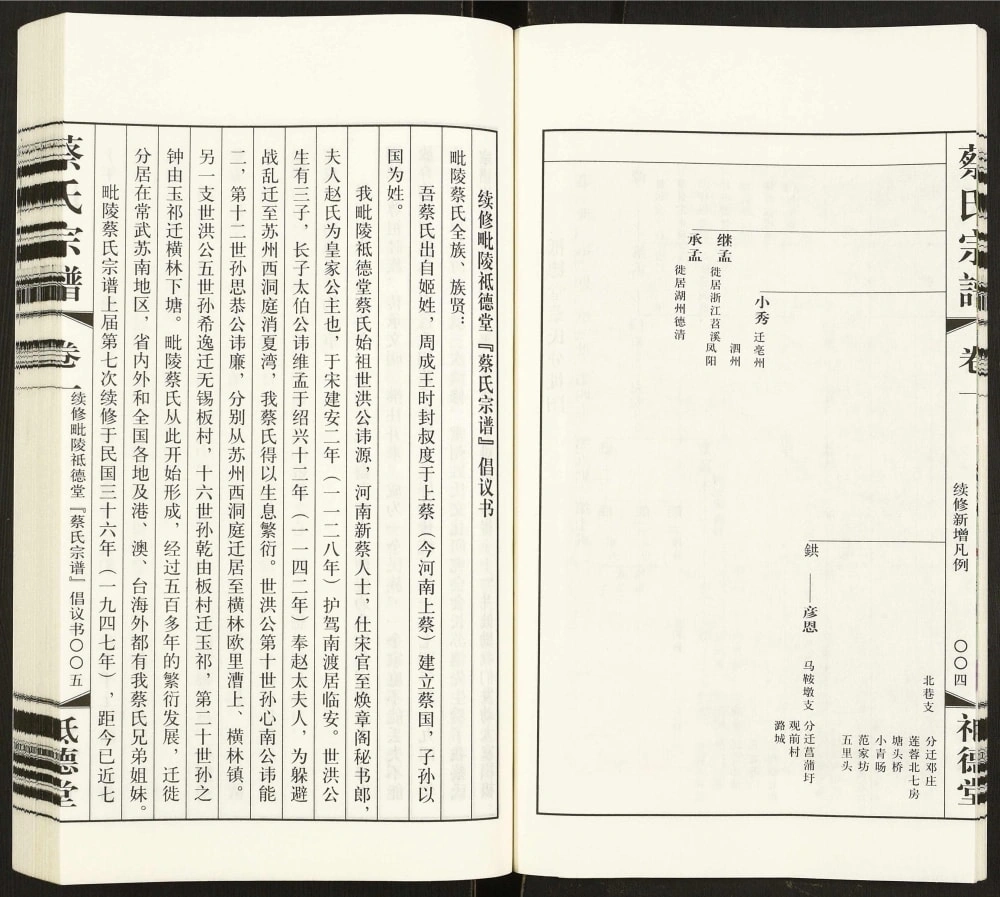 蔡氏宗谱
卷一
续修新增凡例
〇〇四
祗德堂
北巷支
分迁邓庄
莲蓉北七房
塘头桥
小青旸
范家坊
五里头
鉷——彦恩
马鞍墩支
分迁菖蒲圩
观前村
潞城
小秀
迁亳州
泗州
继孟
徙居浙江苕溪凤阳
承孟
徙居湖州德清
续修毗陵祗德堂『蔡氏宗谱』倡议书
毗陵蔡氏全族、族贤：
吾蔡氏出自姬姓，周成王时封叔度于上蔡（今河南上蔡）建立蔡国，子孙以
国为姓。
我毗陵祗德堂蔡氏始祖世洪公讳源，河南新蔡人士，仕宋官至焕章阁秘书郎，
夫人赵氏为皇家公主也，于宋建安二年（一一二八年）护驾南渡居临安。世洪公
生有三子，长子太伯公讳维孟于绍兴十二年（一一四二年）奉赵太夫人，为躲避
战乱迁至苏州西洞庭消夏湾，我蔡氏得以生息繁衍。世洪公第十世孙心南公讳能
二，第十二世孙思恭公讳廉，分别从苏州西洞庭迁居至横林欧里漕上、横林镇。
另一支世洪公五世孙希逸迁无锡板村，十六世孙乾由板村迁玉祁，第二十世孙之
钟由玉祁迁横林下塘。毗陵蔡氏从此开始形成，经过五百多年的繁衍发展，迁徙
分居在常武苏南地区，省内外和全国各地及港、澳、台海外都有我蔡氏兄弟姐妹。
毗陵蔡氏宗谱上届第七次续修于民国三十六年（一九四七年），距今已近七
蔡氏宗谱
卷一
续修毗陵祗德堂『蔡氏宗谱』倡议书
〇〇五
祗德堂